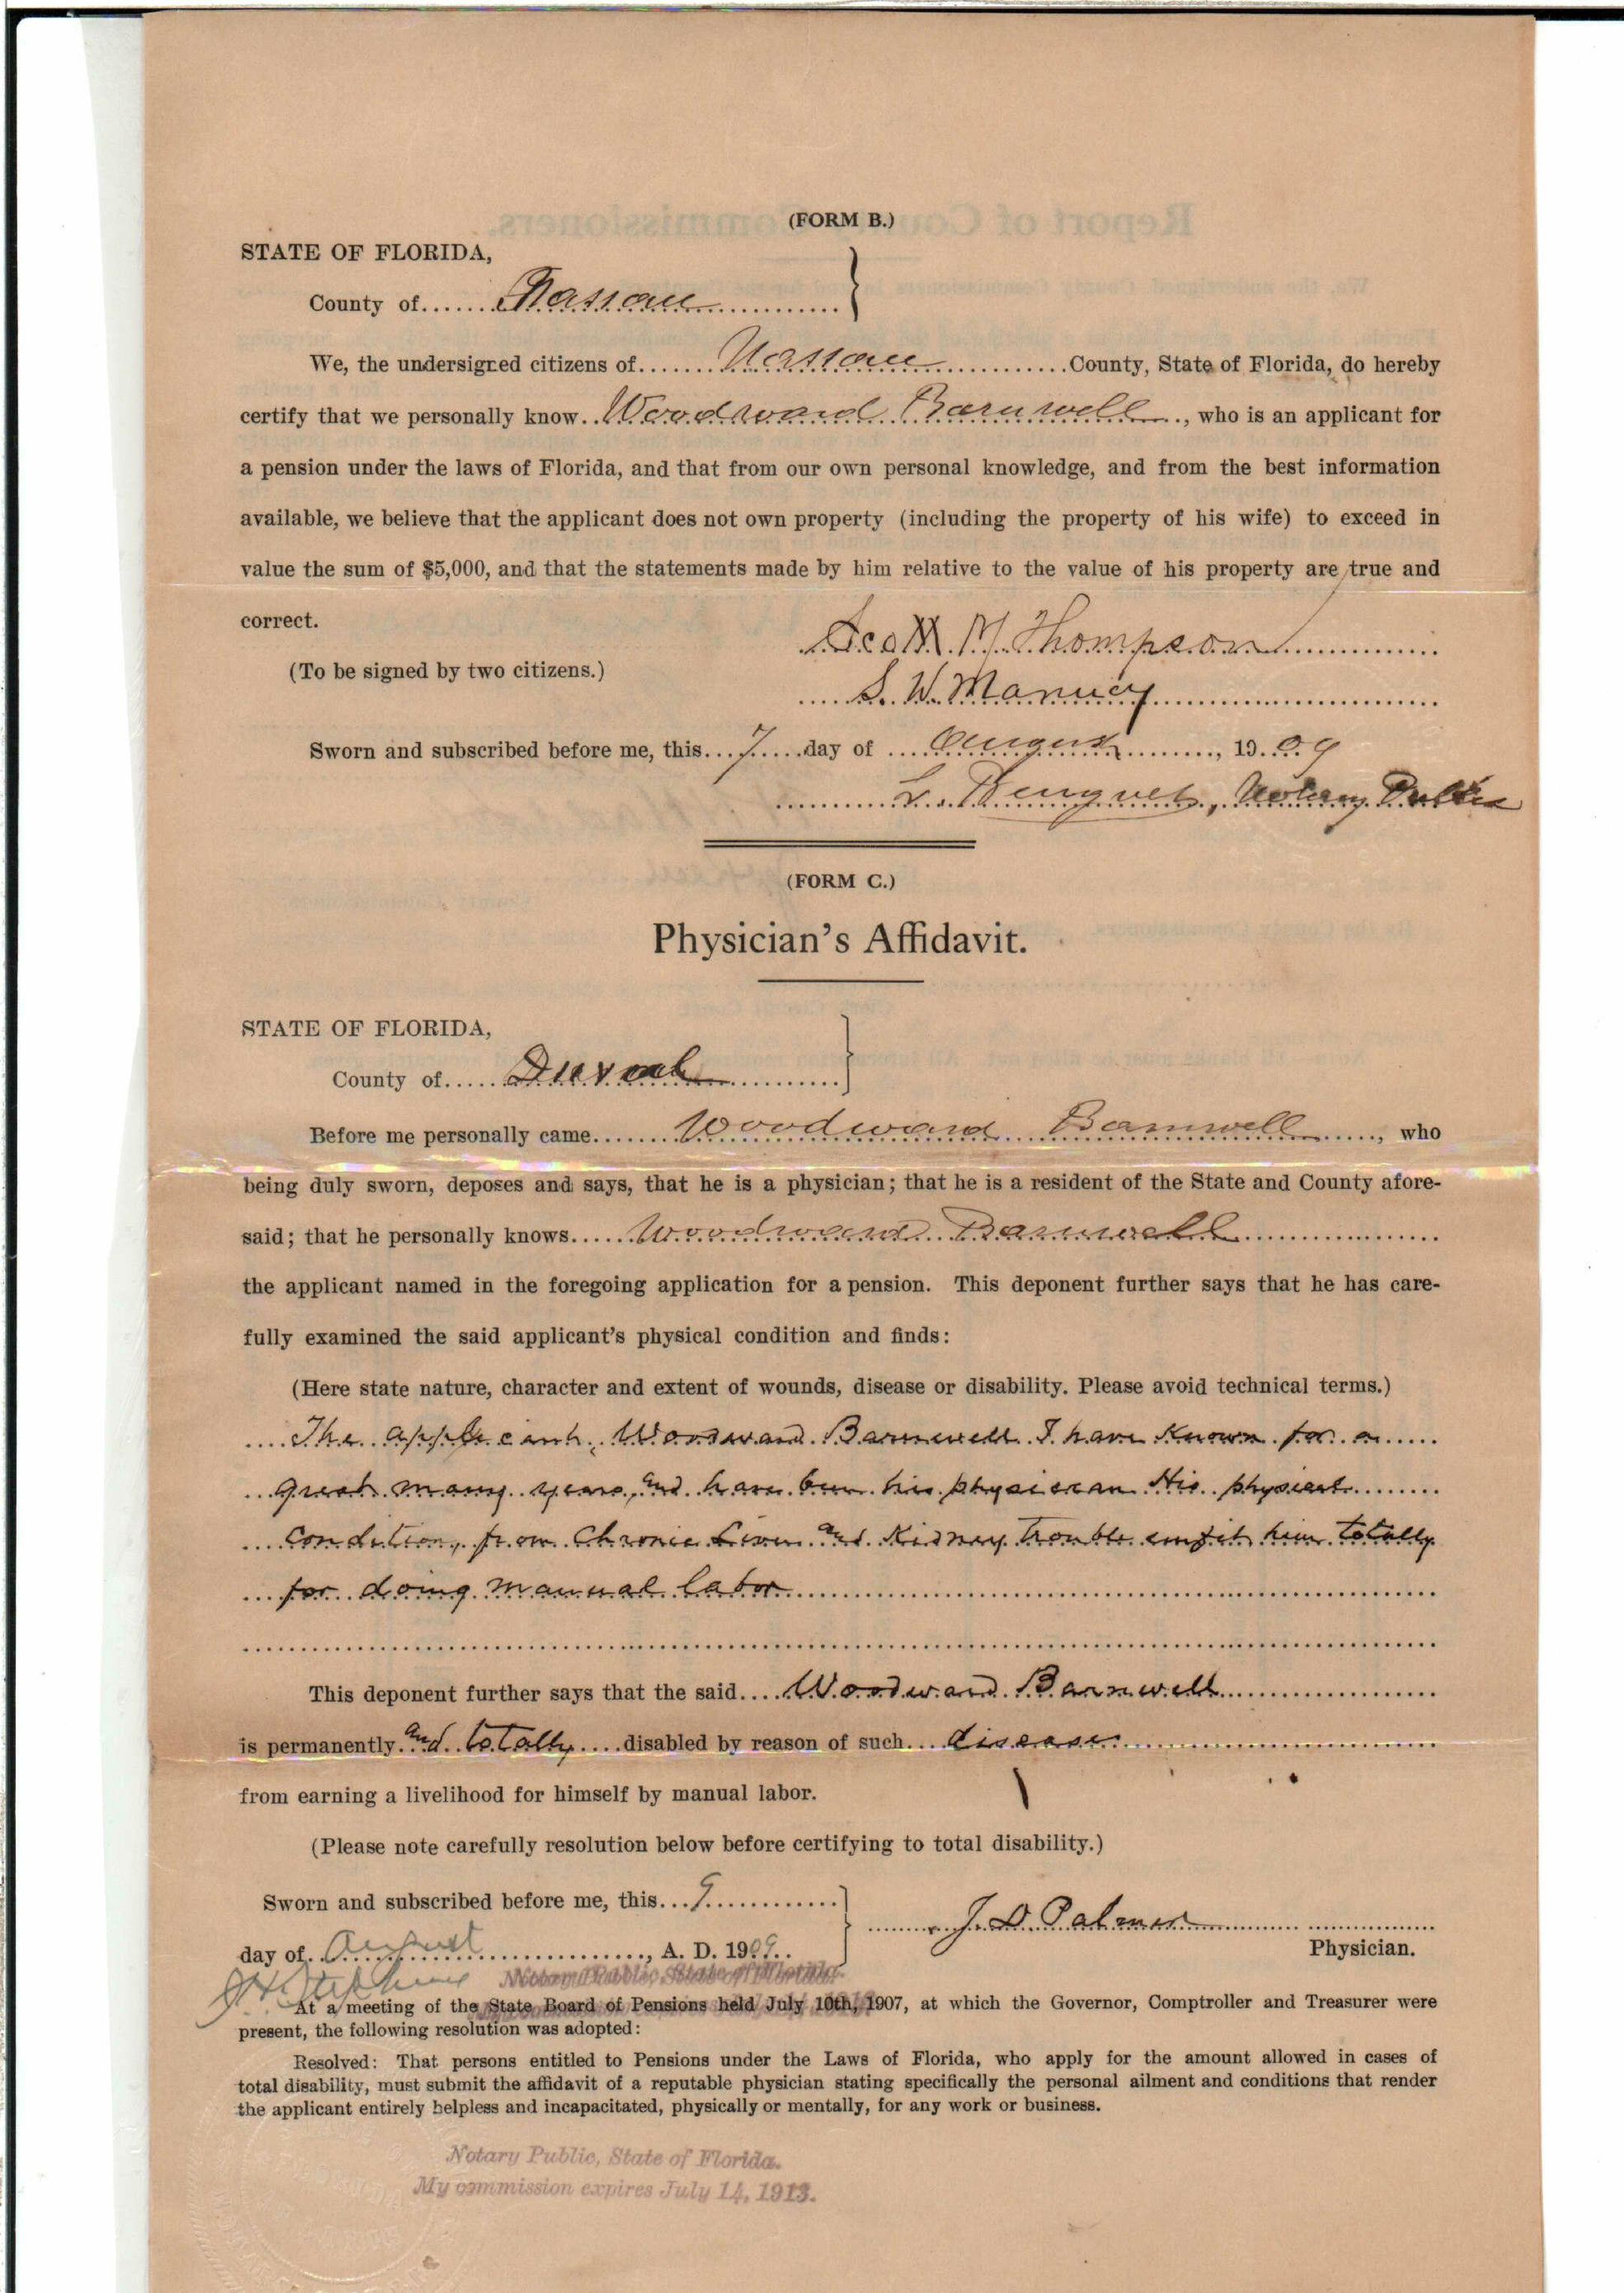 (FORM B.)
STATE OF FLORIDA,
County of Nassau
We, the undersigned citizens of Nassau County, State of Florida, do hereby
certify that we personally know Woodward Barnwell, who is an applicant for
a pension under the laws of Florida, and that from our own personal knowledge, and from the best information
available, we believe that the applicant does not own property (including the property of his wife) to exceed in
value the sum of $5,000, and that the statements made by him relative to the value of his property are true and
correct.
Scott M. Thompson
(To be signed by two citizens.)
S. W. Manucy
Sworn and subscribed before me, this 7 day of August, 1909
L. , Notary Public
(FORM C.)
Physician's Affidavit.
STATE OF FLORIDA,
County of Duval
Before me personally came Woodward Barnwell, who
being duly sworn, deposes and says, that he is a physician; that he is a resident of the State and County afore-
said; that he personally knows Woodward Barnwell
the applicant named in the foregoing application for a pension. This deponent further says that he has care-
fully examined the said applicant's physical condition and finds:
(Here state nature, character and extent of wounds, disease or disability. Please avoid technical terms.)
The applicant, Woodward Barnwell I have Known for a
great many years, and have been his physician His physical
Condition, from Chronic Liver and Kidney trouble unfit him totally
for doing manual labor
This deponent further says that the said Woodward Barnwell
is permanently and totally disabled by reason of such disease
from earning a livelihood for himself by manual labor.
(Please note carefully resolution below before certifying to total disability.)
Sworn and subscribed before me, this 9
J. D. Palmer
day of August, A. D. 1909
Physician.
Notary Public, State of Florida.
At a meeting of the State Board of Pensions held July 10th, 1907, at which the Governor, Comptroller and Treasurer were
present, the following resolution was adopted:
Resolved: That persons entitled to Pensions under the Laws of Florida, who apply for the amount allowed in cases of
total disability, must submit the affidavit of a reputable physician stating specifically the personal ailment and conditions that render
the applicant entirely helpless and incapacitated, physically or mentally, for any work or business.
Notary Public, State of Florida.
My commission expires July 14, 1913.